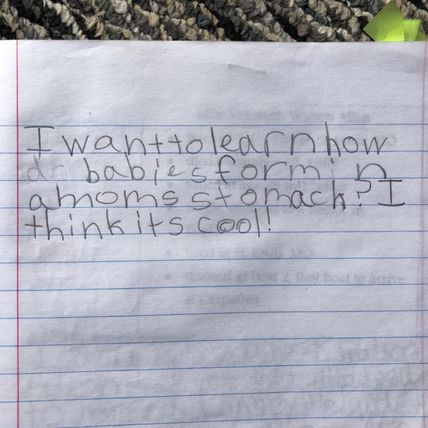 I want to learn how
do babies form in
a moms stomach? I
think its cool!